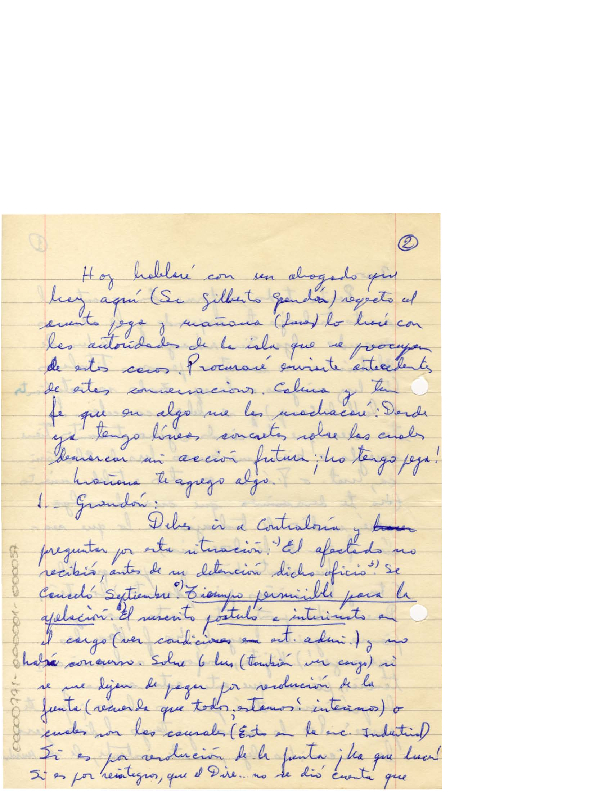 ②
Hoy hablaré con un abogado que
hay aquí (Sr. Gilberto Grandón) respecto al
asunto pega y mañana (lunes) lo haré con
las autoridades de la isla que se preocupan
de estos casos. Procuraré enviarte antecedentes
de estas conversaciones. Calma y ten
fe que en algo me las machacaré. Desde
ya tengo líneas concretas sobre las cuales
demarcar mi acción futura; ¡no tengo pega!
Mañana te agrego algo.
1.- Grandón:
Debes ir a Contraloría y
preguntar por esta situación: El afectado no
recibió, antes de su detención dicho oficio. Se
canceló Septiembre. Tiempo permisible para la
apelación. El suscrito postuló a interinato en
el cargo (ver condiciones en art. admi.) y no
hubo concurso. Sobre 6 hrs (también ver cargo) si
se me dejan de pagar por resolución de la
Junta (recuerde que todos estamos interinos) o
cuales son las causales (Esto en la esc. Industrial)
Si es por resolución de la Junta ¡Ya que hacer!
Si es por reintegros, que el Dire.. no se dió cuenta que
00000771-000001-000037